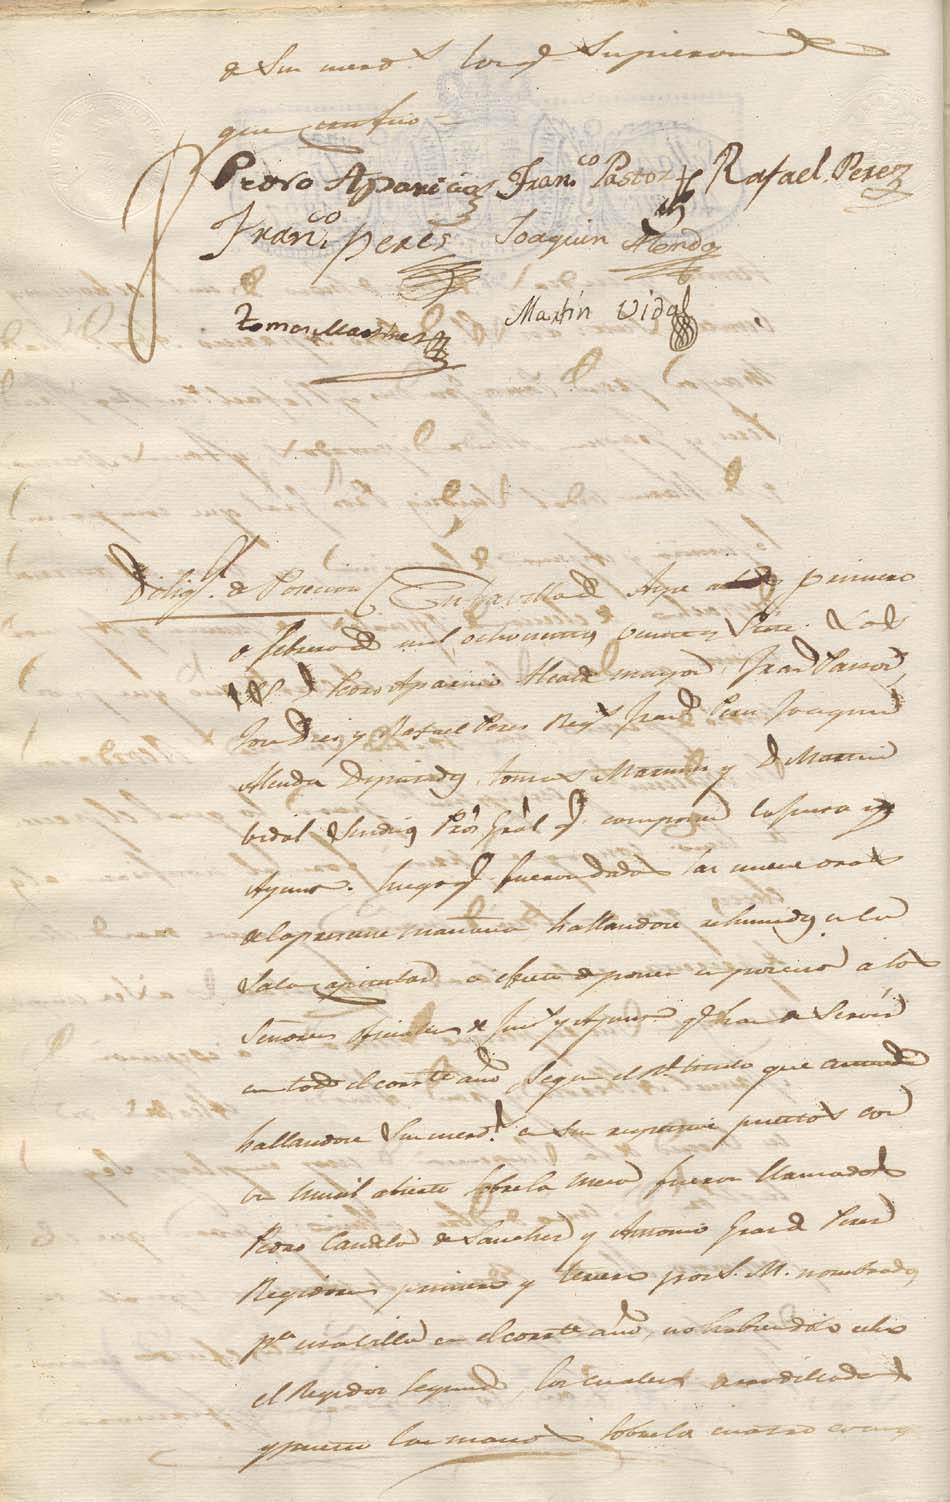 de Sus merds. los q supieron de
que certifico =
Pedro Aparicio Franco. Pastor Rafael Perez
Franco. peres Joaquin Alenda
tomas Martines Martin Vidal
Diligs. de Posecion En la villa de Aspe a primero
de febrero de mil ochocientos veinte y Siete. Los
S. D Pedro Aparicio Alcalde mayor, Frando Pastor,
y Rafael Peres Regs. Frando Peres Joaquin
Alenda Diputados, tomas Martines y D Martin
vidal Sindico Pror. Gral q componen
Ayunto. luego q fueron dadas las nueve oras
de la presente mañana hallandose rehunidos en la
Sala capitular a efecto de poner en posecion a los
Señores oficiales de Justa. y Ayunto. q han de Servir
en todo el corrte. año, segun el Rl. titulo que
hallandose Sus merds. en sus respectivos puestos con
un misal abierto sobre la mesa fueron llamados
Pedro Candela de Sanches y Antonio Grao de Peres
Regidores primero y tercero por S. M. nombrados
pa. esta villa en el corrte. año, no habiendolo sido
el Regidor Segundo, los cuales arrodillados
y puestas las manos sobre los cuatro evangs